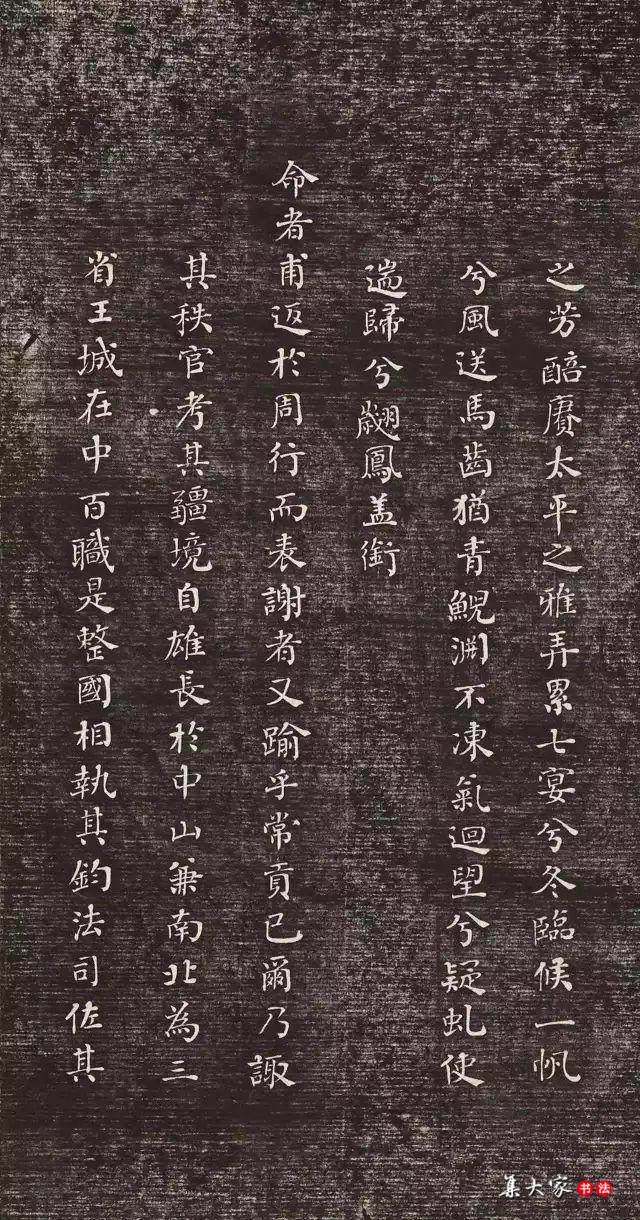 之芳醅賡太平之雅弄累七宴兮冬臨候一帆
兮風送馬齒猶青鯢渊不凍氣迴望兮疑虬使
遄歸兮翽鳳盖銜
命者甫返於周行而表謝者又踰乎常貢已爾乃諏
其秩官考其疆境自雄長於中山兼南北為三
省王城在中百職是整國相執其鈞法司佐其
集大家书法